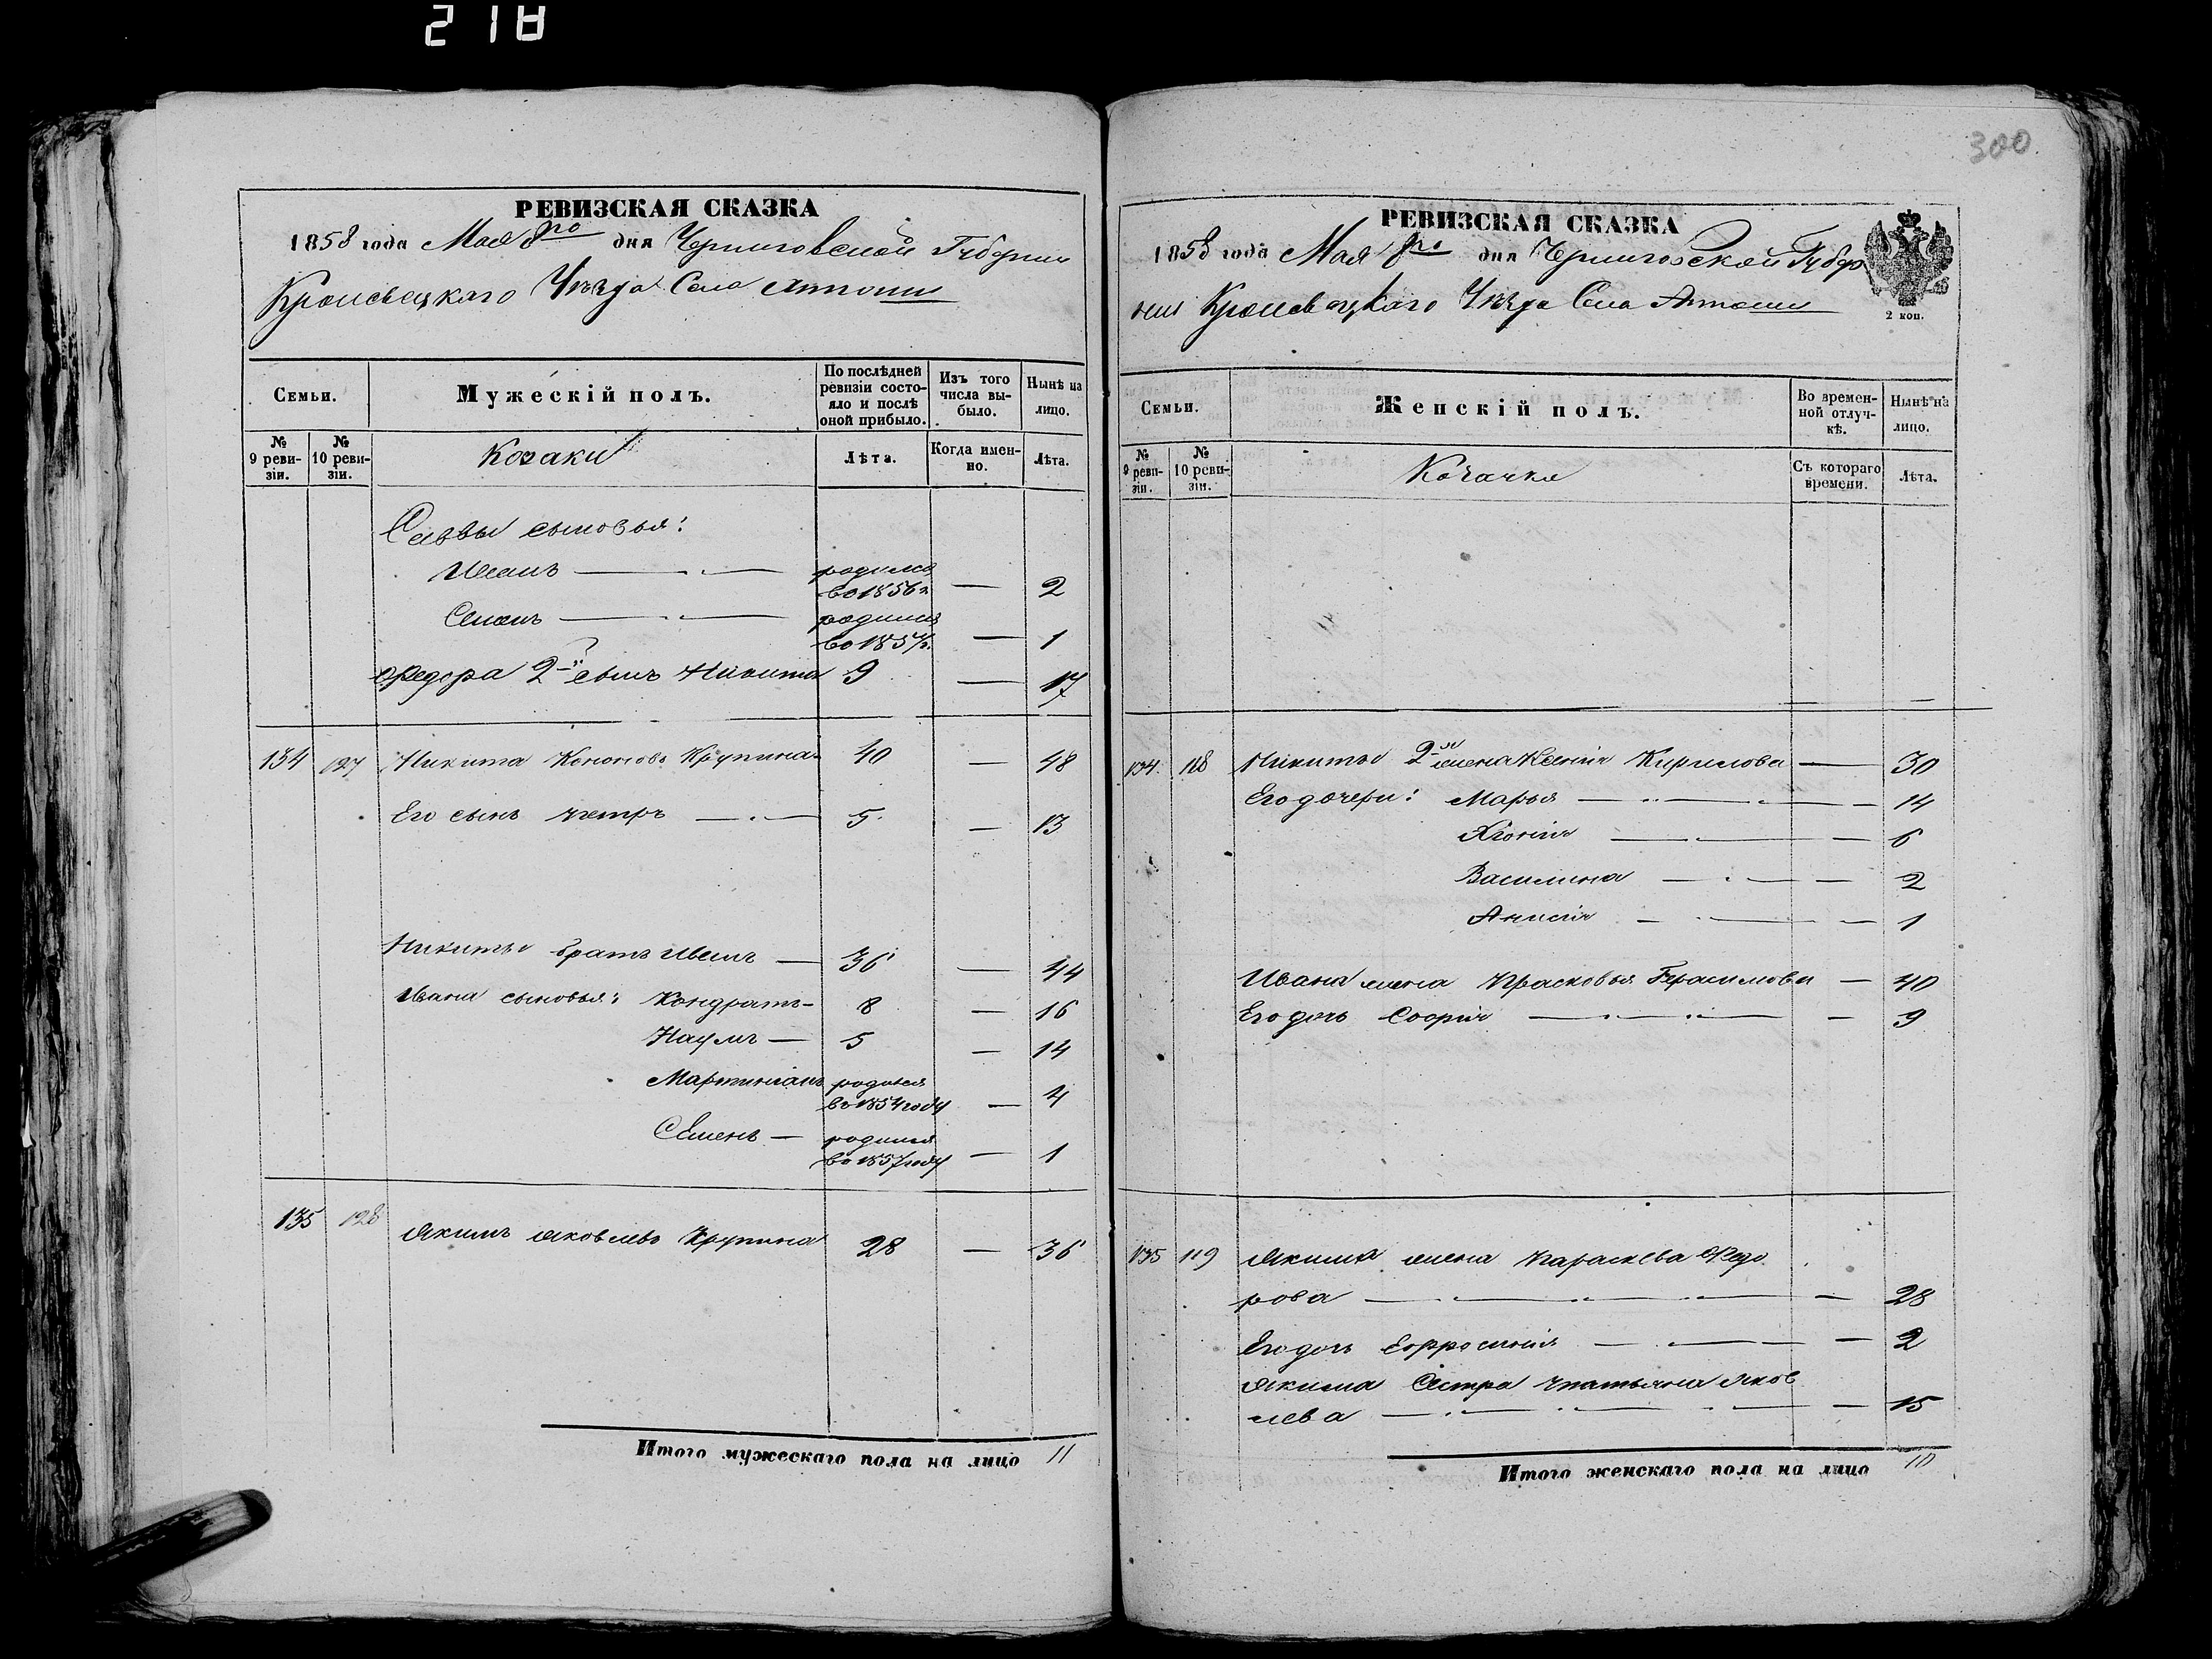 218
РЕВИЗСКАЯ СКАЗКА
1858 года Мая 8го дня Черниговской Губернии
Кролевецкаго Уѣзда Села
Семьи.
Мужескій полъ.
По послѣдней ревизіи состояло и послѣ оной прибыло.
Изъ того числа выбыло.
Нынѣ на лицо.
№ 9 ревизіи.
№ 10 ревизіи.
Козаки
Лѣта.
Когда именно.
Лѣта.
Саввы сыновья:
Иванъ — родился во 1856 г. — 2
Семенъ — родился во 1857 г. — 1
Федора 2й сынъ Никита 9 — 17
134 127 Никита Кононовъ Крупина 40 — 48
Его сынъ Петръ — 5 — 13
Никиты братъ Иванъ — 36 — 44
Ивана сыновья: Кондратъ — 8 — 16
Наумъ — 5 — 14
Мартиніанъ родился въ 1854 году — 4
Семенъ — родился въ 1857 году — 1
135 128 Якимъ Яковлевъ Крупина 28 — 36
Итого мужескаго пола на лицо 11
300
РЕВИЗСКАЯ СКАЗКА
1858 года Мая 8го дня Черниговской Губер
ніи Кролевецкаго Уѣзда Села
2 коп.
Семьи.
Женскій полъ.
Во временной отлучкѣ.
Нынѣ на лицо.
№ 9 ревизіи.
№ 10 ревизіи.
Козачки
Съ котораго времени.
Лѣта.
134 118 Никиты 2я жена Ксенія Кирилова — 30
Его дочери: Марья — 14
Хіонія — 6
Василина — 2
Анисія — 1
Ивана жена Прасковья Герасимова — 40
Его дочь Софія — 9
135 119 Якима жена Параскева Федо
рова — 28
Его дочь Ефросинія — 2
Якима Сестра Татьяна Яков
лева — 15
Итого женскаго пола на лицо 10